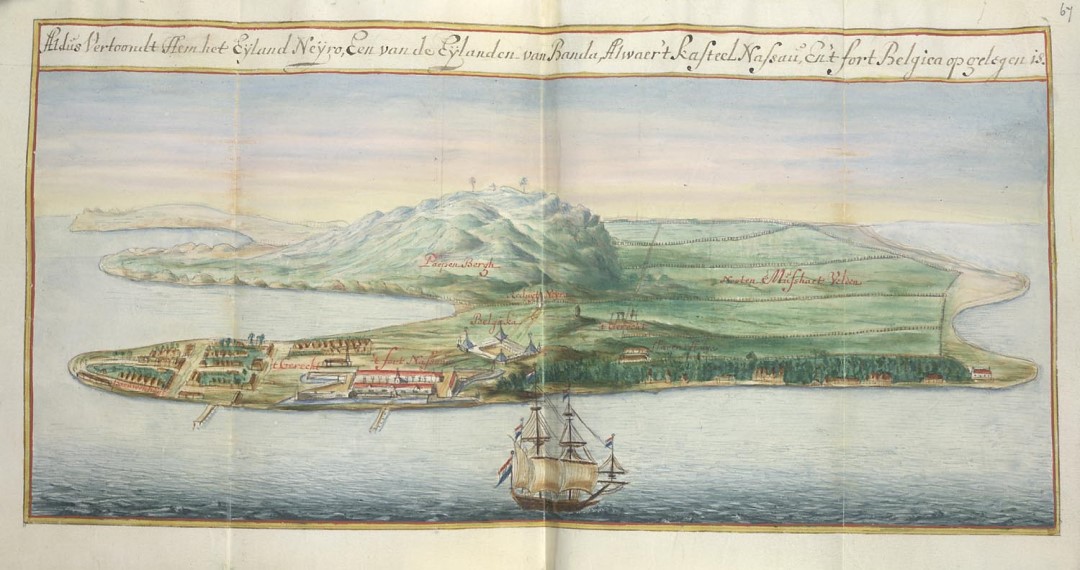 67
Aldus Vertoondt Hem het Eÿland Neÿro, Een van de Eÿlanden van Banda, Alwaer't kasteel Nassau, En't fort Belgica op gelegen is.
Papen Bergh
Noten Musschart Velden
Belgika
't Gerecht
't Gerecht